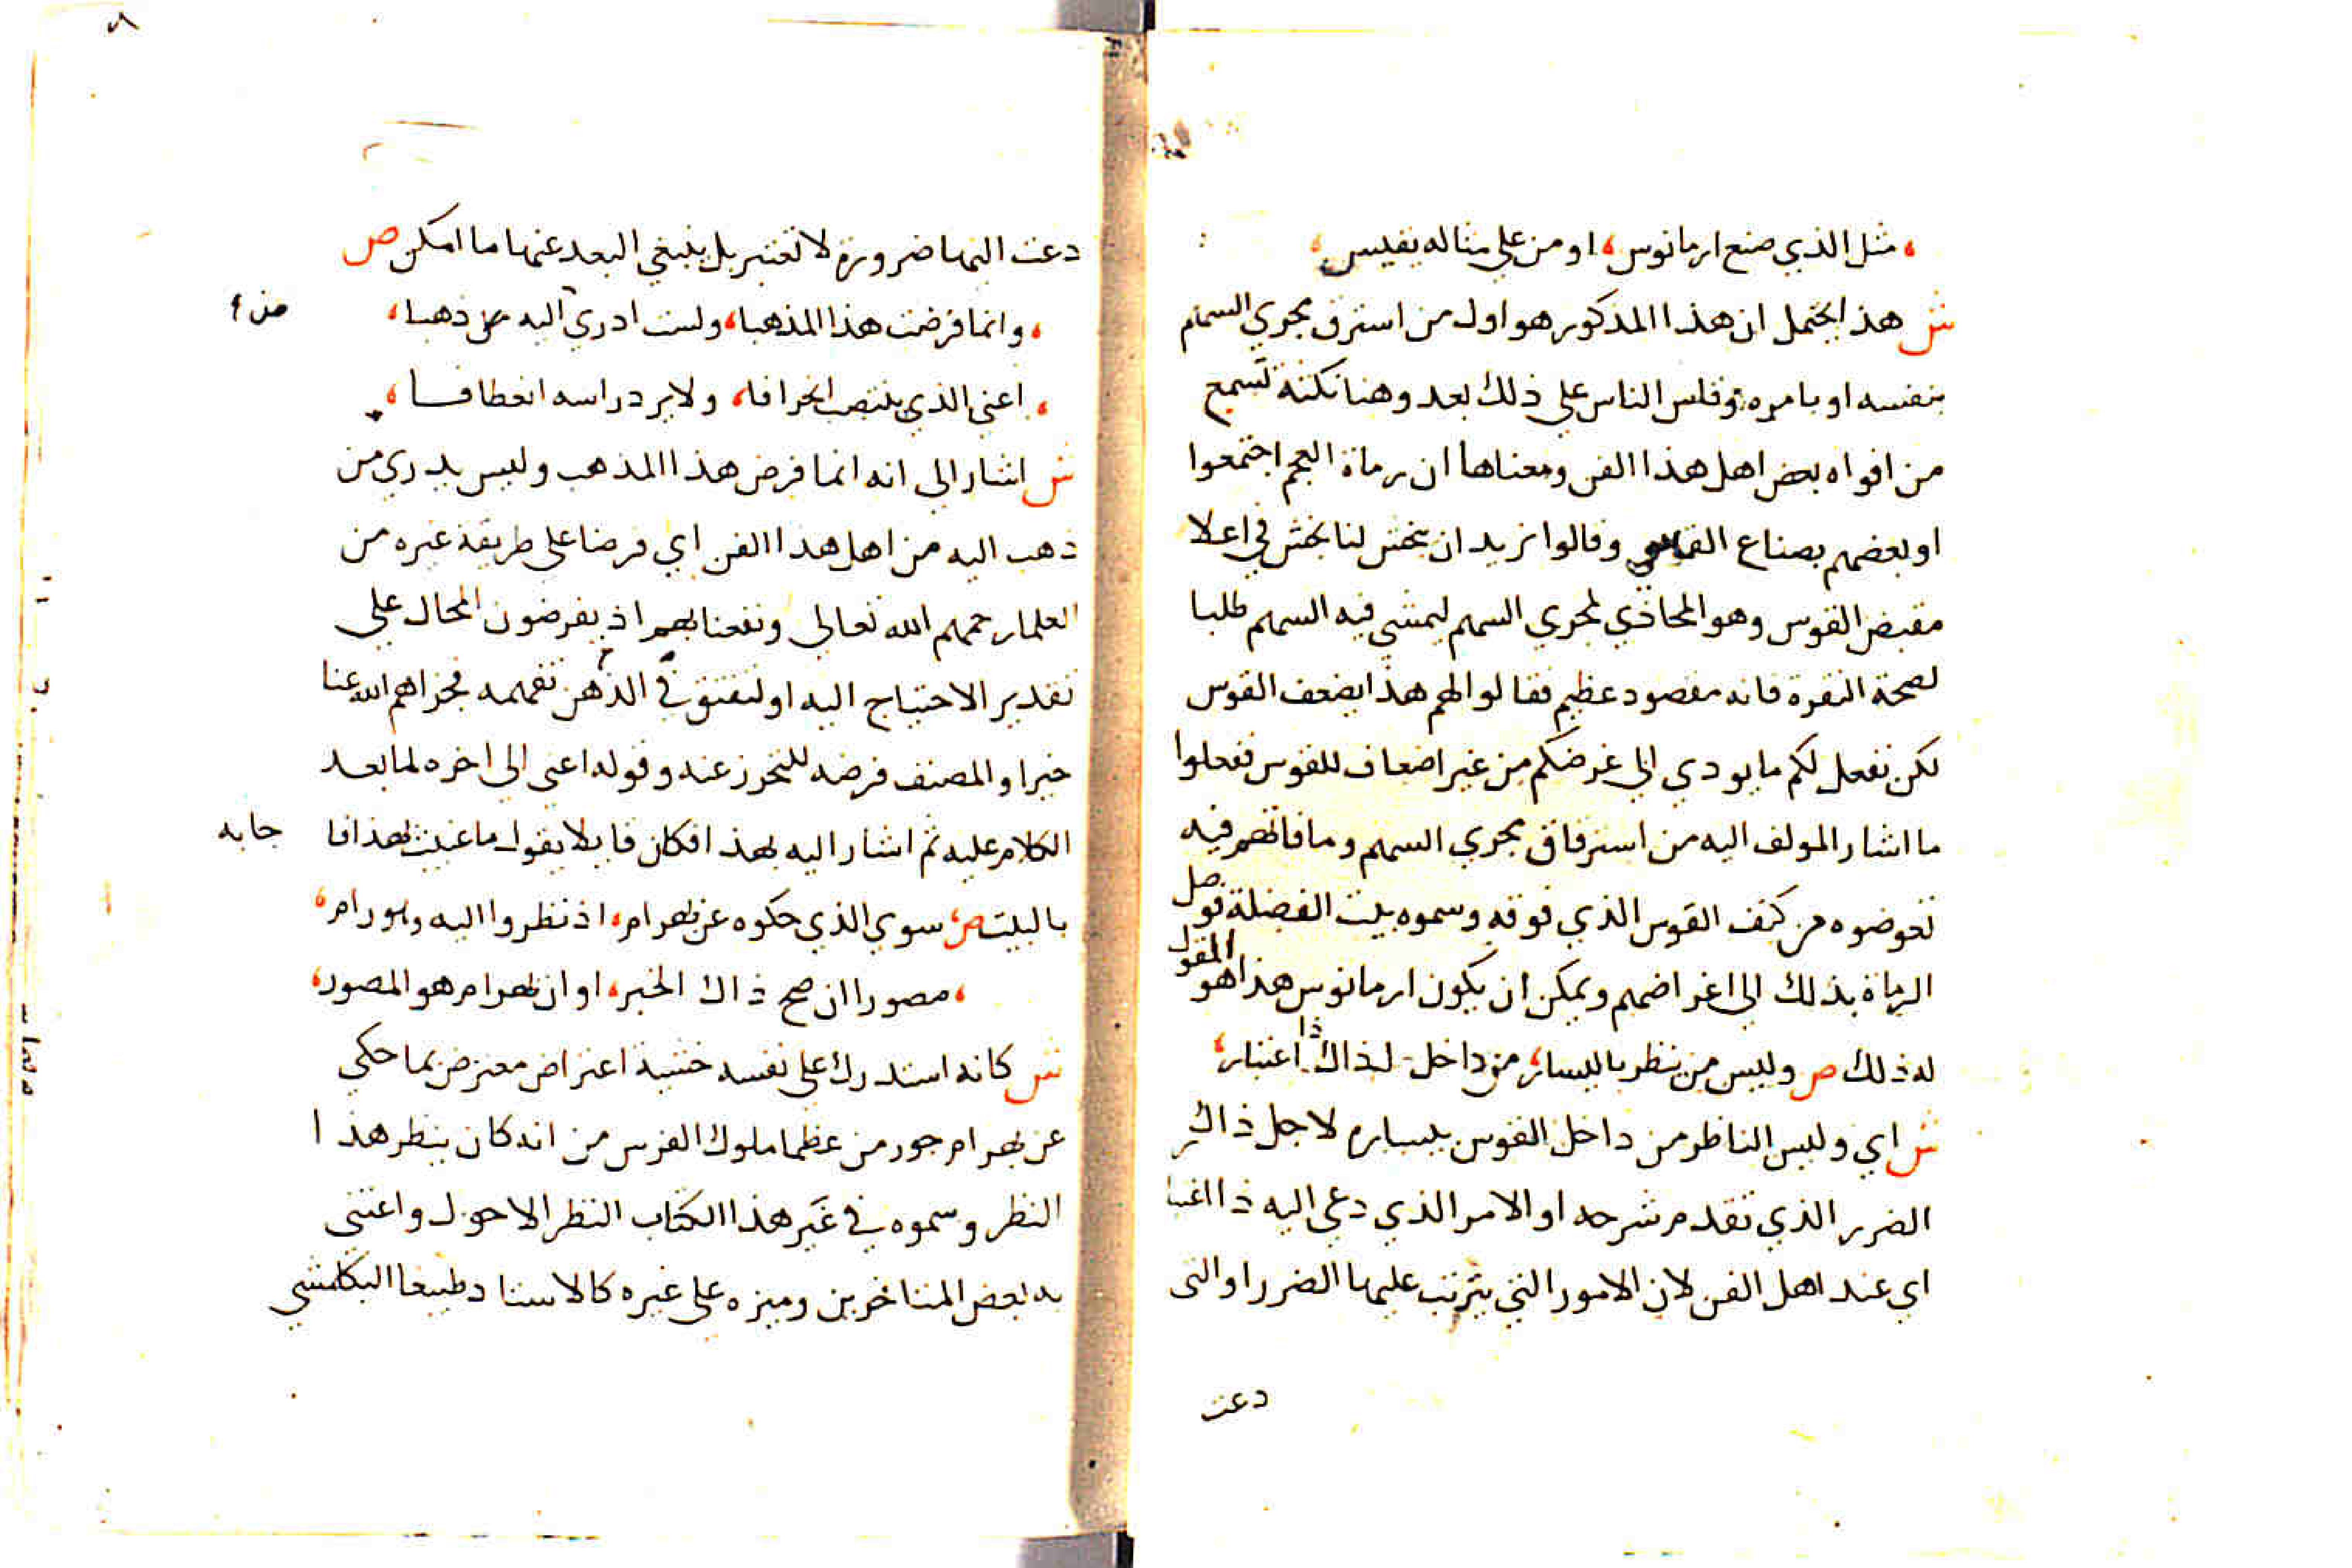 ، مثل الذي صنع ارمانوس، او من علي مثاله يقيس،
ش هذا يحتمل ان هذا المذكور هو اول من استرق مجري السهم
بنفسه او بامره وقاس الناس علي ذلك بعد وهنا نكتة تسمع
من افواه بعض اهل هذا الفن ومعناها ان رماة العجم اجتمعوا
او بعضهم بصناع القسي وقالوا نريد ان تبخش لنا بخش في اعلا
مقبض القوس وهو المحاذي لمجري السهم ليمشي فيه السهم طلبا
لصحة النقرة فانه مقصود عظيم فقالوا لهم هذا يضعف القوس
لكن نفعل لكم ما يودي الي غرضكم من غير اضعاف للقوس ففعلوا
ما اشار المولف اليه من استرقاق مجري السهم وما فاتهم فيه
تعوضوه من كتف القوس الذي فوقه وسموه بيت الفضلة توصل
الرماة بذلك الي اغراضهم ويمكن ان يكون ارمانوس هذا هو المقول
له ذلك ص وليس من ينظر باليسار، من داخل لذاك ذا اعتبار،
ش اي وليس الناظر من داخل القوس بيساره لاجل ذاك
الضرر الذي تقدم شرحه او الامر الذي دعي اليه ذا اعتبا
اي عند اهل الفن لان الامور التي يترتب عليها الضرر او التي
دعت
دعت اليها ضرورة لا تعتبر بل ينبغي البعد عنها ما امكن ص
، وانما فرضت هذا المذهبا، ولست ادري اليه من ذهبا،
من
، اعني الذي ينتصب انحرافا، ولا يرد راسه انعطافا،
ش اشار الي انه انما فرض هذا المذهب وليس يدري من
ذهب اليه من اهل هذا الفن اي فرضا علي طريقة غيره من
العلما رحمهم الله تعالي ونفعنا بهم اذ يفرضون المحال علي
تقدير الاحتياج اليه او لتفتق في الذهن تفهمه فجزاهم الله عنا
خيرا والمصنف فرضه للتحرز عنه وقوله اعني الي اخره لما بعد
الكلام عليه ثم اشار اليه بهذا فكان قايلا يقول ما عنيت بهذا فا
جابه
بالبيت ص، سوي الذي حكوه عن بهرام، اذ نظروا اليه وهو رام،
، مصورا ان صح ذاك الخبر، او ان بهرام هو المصور،
ش كانه استدرك علي نفسه خشية اعتراض معترض بما حكي
عن بهرام جور من عظما ملوك الفرس من انه كان ينظر هذا
النظر وسموه في غير هذا الكتاب النظر الاحول واعتني
به بعض المتاخرين وميزه علي غيره كالاستاد طيبغا البكلمشي